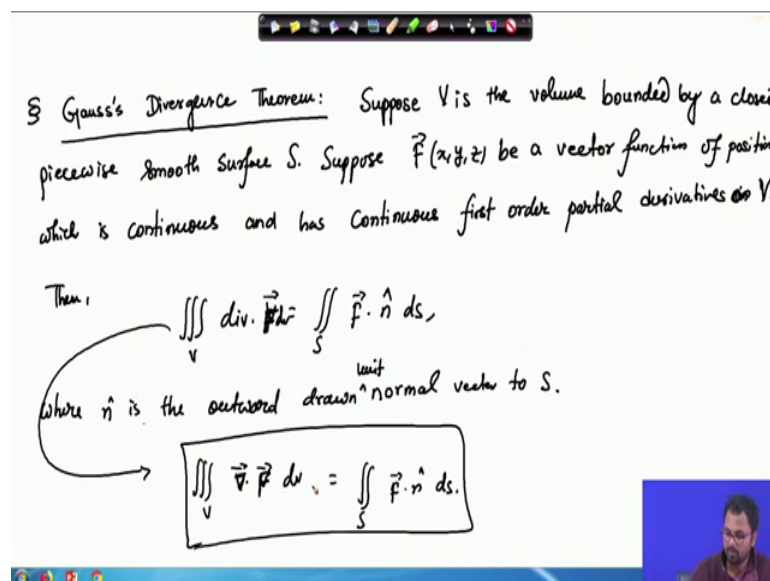 § Gauss's Divergence Theorem: Suppose V is the volume bounded by a closed
piecewise smooth surface S. Suppose \vec{F}(x,y,z) be a vector function of position
which is continuous and has continuous first order partial derivatives in V.
Then,
∭_V div. \vec{F} dv = ∬_S \vec{F}. \hat{n} ds,
where \hat{n} is the outword drawn ^unit normal vector to S.
∭_V \vec{∇}. \vec{F} dv = ∬_S \vec{F}. \hat{n} ds.